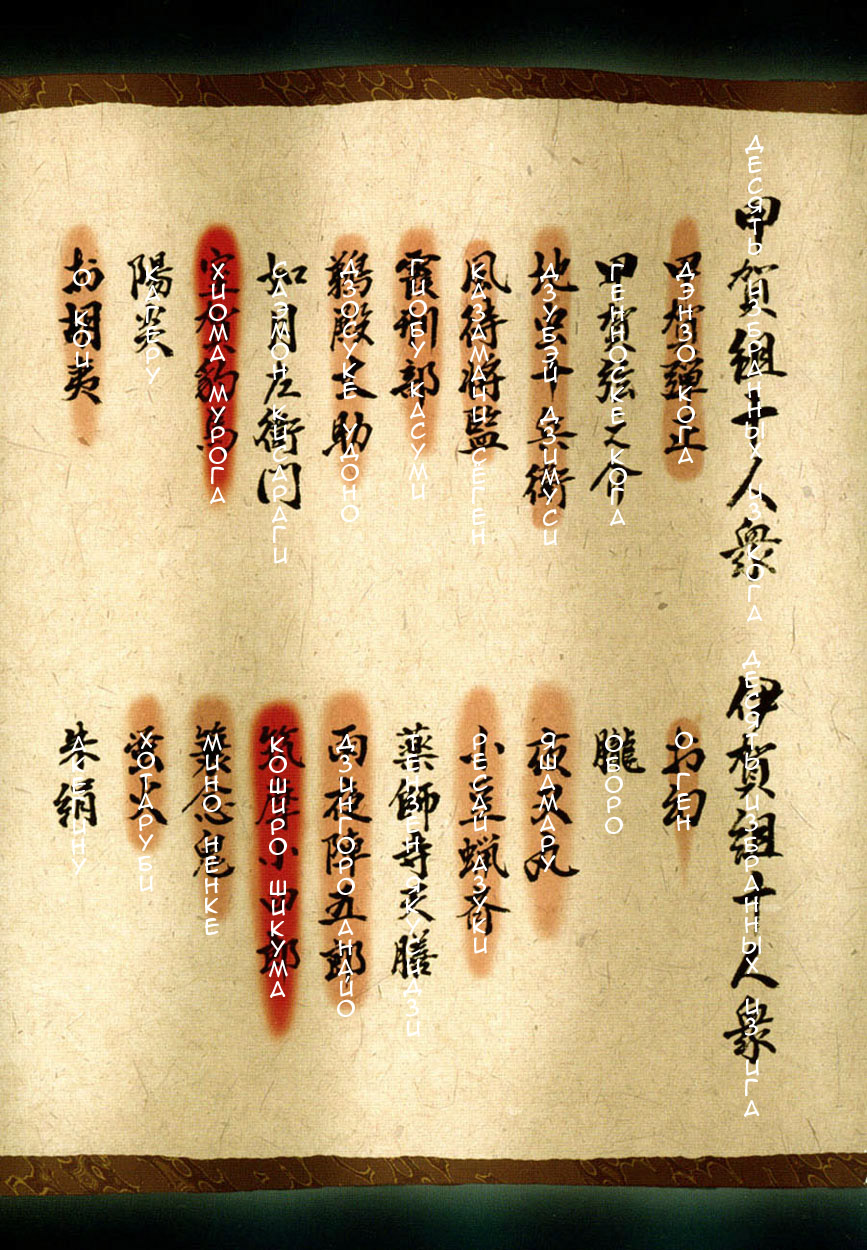 甲賀組十人衆
ДЕСЯТЬ ИЗБРАННЫХ ИЗ КОГА
甲賀弾正
ДЭНЗО КОГА
甲賀弦之介
ГЕННОСКЕ КОГА
地虫十兵衛
ДЗУБЭЙ ДЗИМУСИ
風待将監
КАЗАМАЧИ СЕГЕН
霞刑部
ГИОБУ КАСУМИ
鵜殿丈助
ДЗОСУКЕ УДОНО
如月左衛門
САЭМОН КИСАРАГИ
室賀豹馬
ХИОМА МУРОГА
陽炎
КАГЕРУ
お胡夷
О КОИ
伊賀組十人衆
ДЕСЯТЬ ИЗБРАННЫХ ИЗ ИГА
お幻
О ГЕН
朧
ОБОРО
夜叉丸
ЯШАМАРУ
小豆蝋斎
РЕСАЙ АЗУКИ
薬師寺天膳
ТЕНЗЕН ЯКУШИДЗИ
雨夜陣五郎
ДЗИНГОРО АМАЙО
筑摩小四郎
КОШИРО ШИКУМА
簔念鬼
МИНО НЕНКЕ
蛍火
ХОТАРУБИ
朱絹
АКЕГИНУ